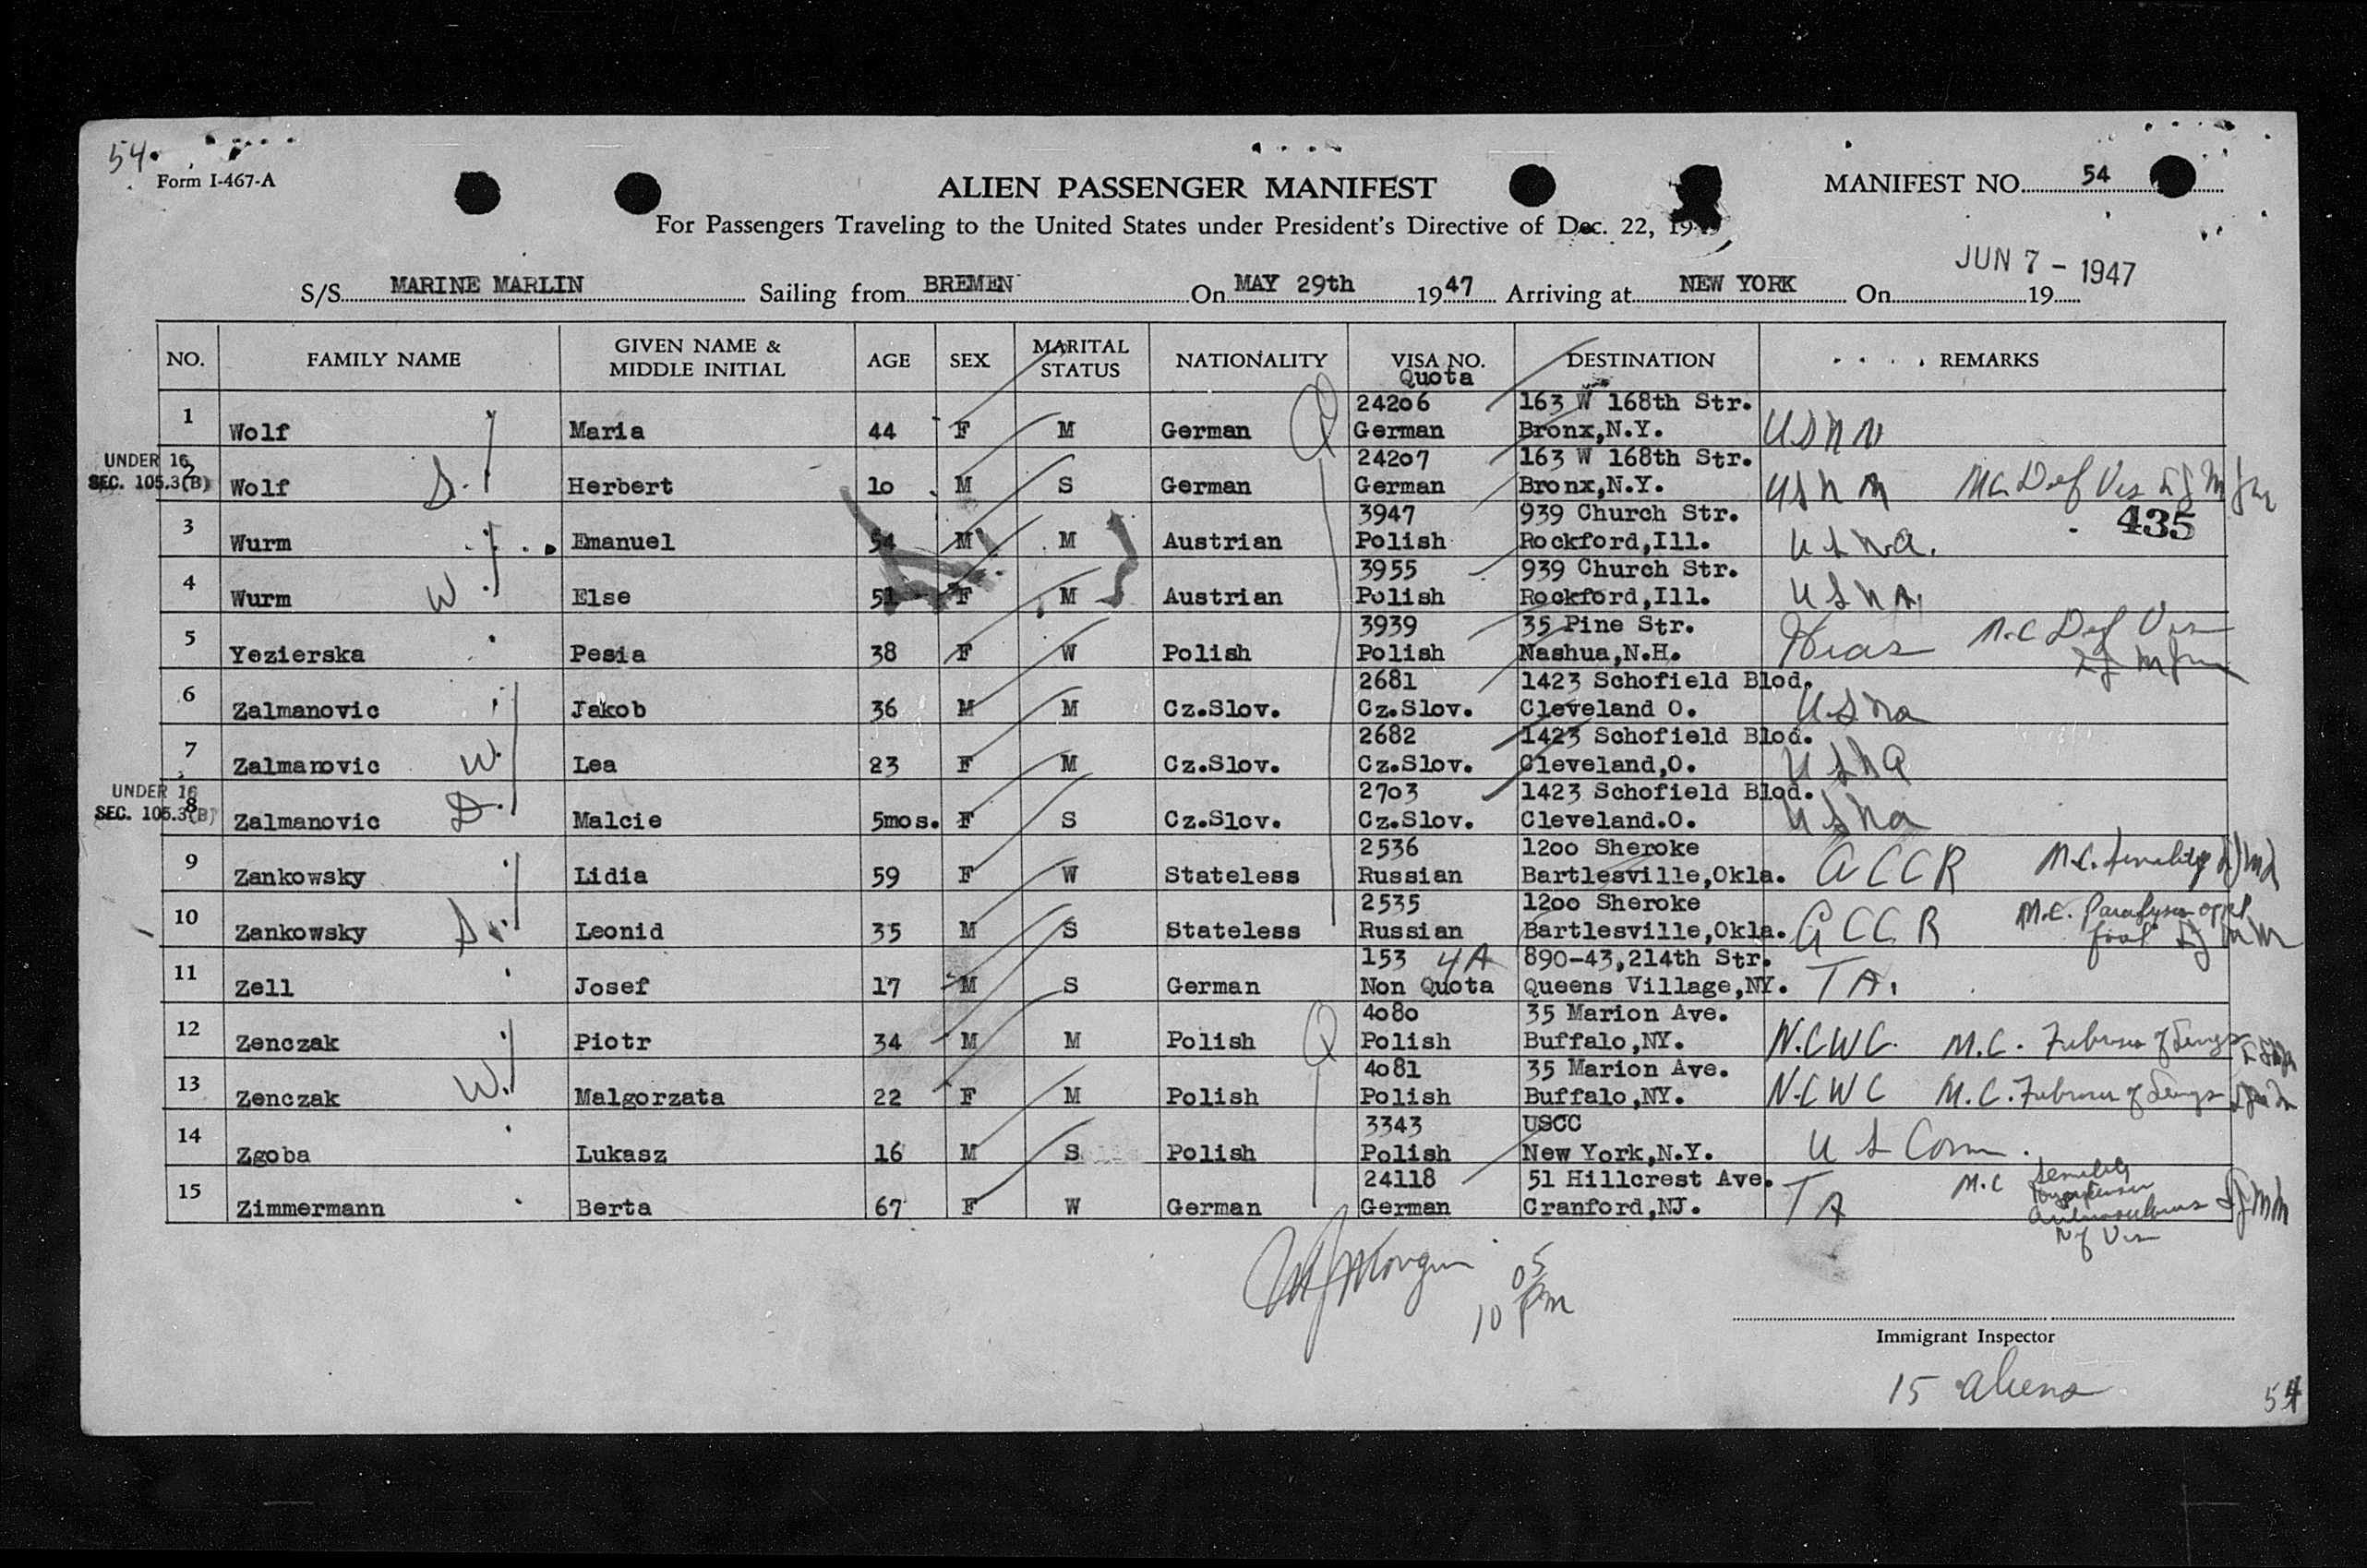 54
Form I-467-A
ALIEN PASSENGER MANIFEST
MANIFEST NO. 54
For Passengers Traveling to the United States under President's Directive of Dec. 22, 19
JUN 7 - 1947
S/S MARINE MARLIN Sailing from BREMEN On MAY 29th 1947 Arriving at NEW YORK On 19
NO. FAMILY NAME GIVEN NAME & MIDDLE INITIAL AGE SEX MARITAL STATUS NATIONALITY VISA NO. Quota DESTINATION REMARKS
24206 163 W 168th Str.
1 Wolf Maria 44 F M German Q German Bronx,N.Y. USNA
UNDER 16 24207 163 W 168th Str.
SEC. 105.3(B) 2 Wolf S. Herbert 10 M S German German Bronx,N.Y. USNA M.C. Def Vis
3947 939 Church Str. 435
3 Wurm Emanuel 54 M M Austrian Polish Rockford,Ill. USNA.
3955 939 Church Str.
4 Wurm W Else 51 F M Austrian Polish Rockford,Ill. USNA
3939 35 Pine Str.
5 Yezierska Pesia 38 F W Polish Polish Nashua,N.H. Hias M.C Def Vis
2681 1423 Schofield Blod.
6 Zalmanovic Jakob 36 M M Cz.Slov. Cz.Slov. Cleveland O. USNA
2682 1423 Schofield Blod.
7 Zalmanovic W. Lea 23 F M Cz.Slov. Cz.Slov. Cleveland,O. USNA
UNDER 16 2703 1423 Schofield Blod.
SEC. 105.3(B) 8 Zalmanovic D. Malcie 5mos. F S Cz.Slov. Cz.Slov. Cleveland.O. USNA
2536 1200 Sheroke
9 Zankowsky Lidia 59 F W Stateless Russian Bartlesville,Okla. ACCR M.C. Senility
2535 1200 Sheroke
10 Zankowsky S. Leonid 35 M S Stateless Russian Bartlesville,Okla. ACCR M.C. Paralysis of rt foot
153 4A 890-43,214th Str.
11 Zell Josef 17 M S German Non Quota Queens Village,NY. TA.
4080 35 Marion Ave.
12 Zenczak Piotr 34 M M Polish Q Polish Buffalo,NY. N.C.W.C. M.C. Fibrosis of Lungs
4081 35 Marion Ave.
13 Zenczak W. Malgorzata 22 F M Polish Polish Buffalo,NY. N.C.W.C M.C. Fibrosis of Lungs
3343 USCC
14 Zgoba Lukasz 16 M S Polish Polish New York,N.Y. U S Com.
24118 51 Hillcrest Ave.
15 Zimmermann Berta 67 F W German German Cranford,NJ. TA M.C Senility
10 05 PM
Immigrant Inspector
15 aliens
54